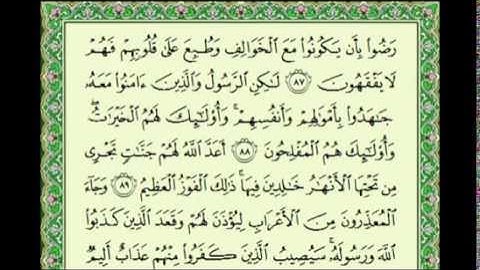 رَضُوا۟ بِأَن يَكُونُوا۟ مَعَ ٱلْخَوَالِفِ وَطُبِعَ عَلَىٰ قُلُوبِهِمْ فَهُمْ
لَا يَفْقَهُونَ ٨٧ لَـٰكِنِ ٱلرَّسُولُ وَٱلَّذِينَ ءَامَنُوا۟ مَعَهُۥ
جَـٰهَدُوا۟ بِأَمْوَٰلِهِمْ وَأَنفُسِهِمْ ۚ وَأُو۟لَـٰٓئِكَ لَهُمُ ٱلْخَيْرَٰتُ ۖ
وَأُو۟لَـٰٓئِكَ هُمُ ٱلْمُفْلِحُونَ ٨٨ أَعَدَّ ٱللَّهُ لَهُمْ جَنَّـٰتٍ تَجْرِى
مِن تَحْتِهَا ٱلْأَنْهَـٰرُ خَـٰلِدِينَ فِيهَا ۚ ذَٰلِكَ ٱلْفَوْزُ ٱلْعَظِيمُ ٨٩ وَجَآءَ
ٱلْمُعَذِّرُونَ مِنَ ٱلْأَعْرَابِ لِيُؤْذَنَ لَهُمْ وَقَعَدَ ٱلَّذِينَ كَذَبُوا۟
ٱللَّهَ وَرَسُولَهُۥ ۚ سَيُصِيبُ ٱلَّذِينَ كَفَرُوا۟ مِنْهُمْ عَذَابٌ أَلِيمٌ